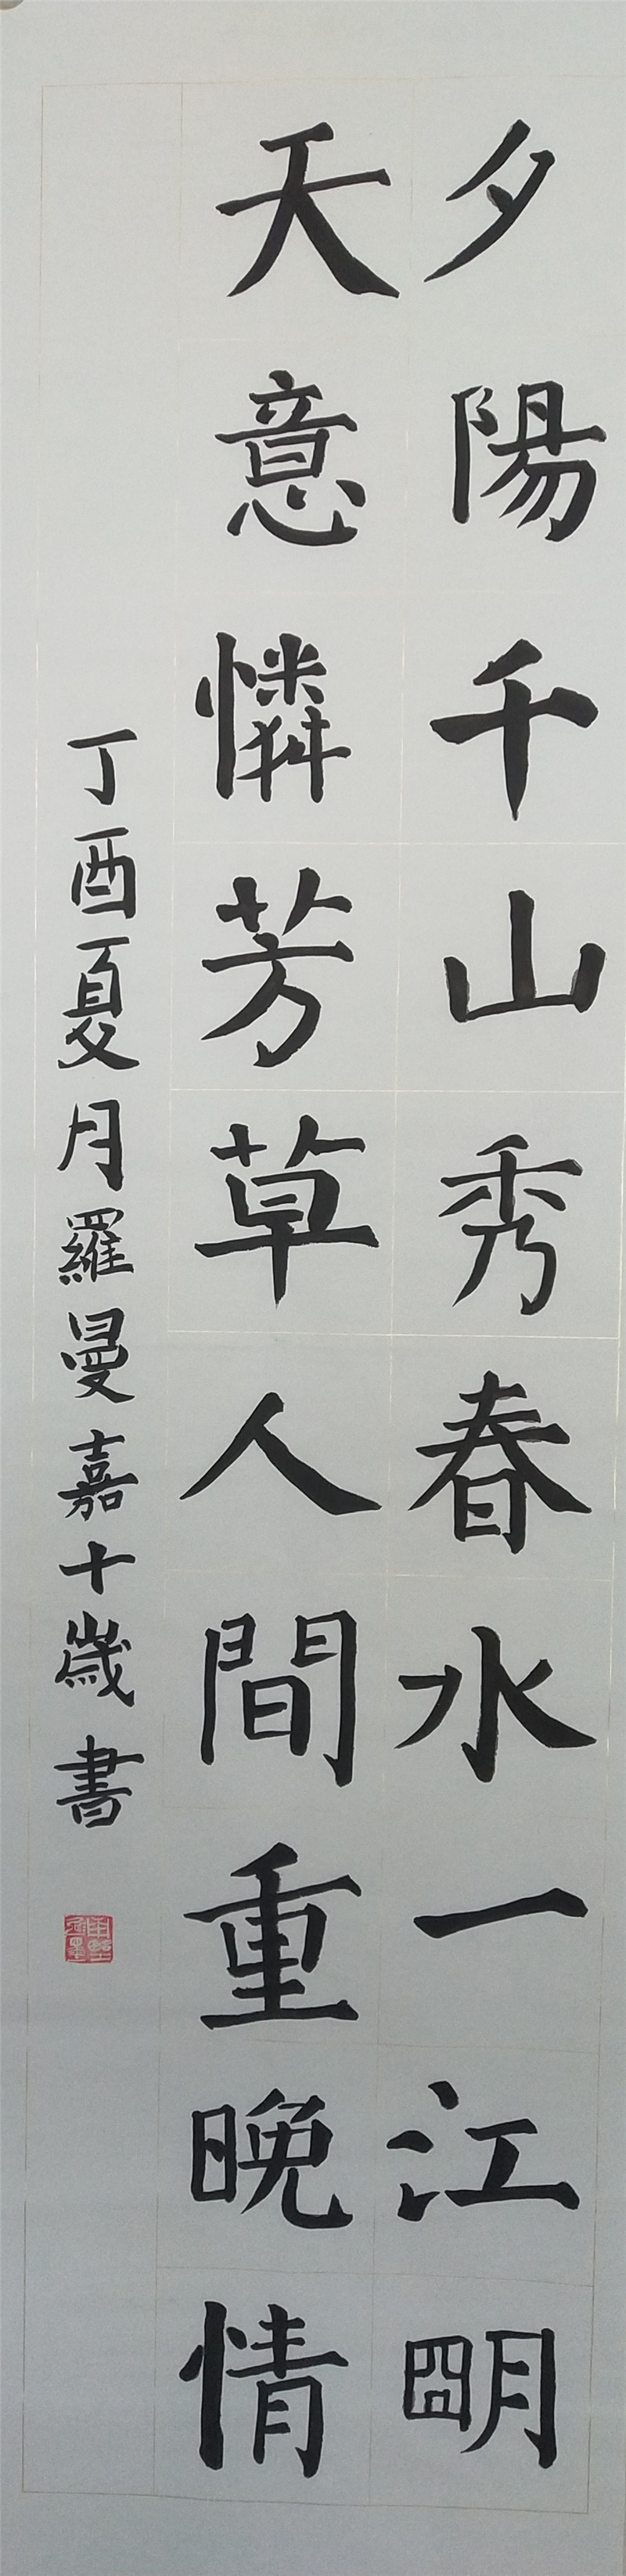 夕陽千山秀春水一江明
天意憐芳草人間重晚情
丁酉夏月羅曼嘉十歲書